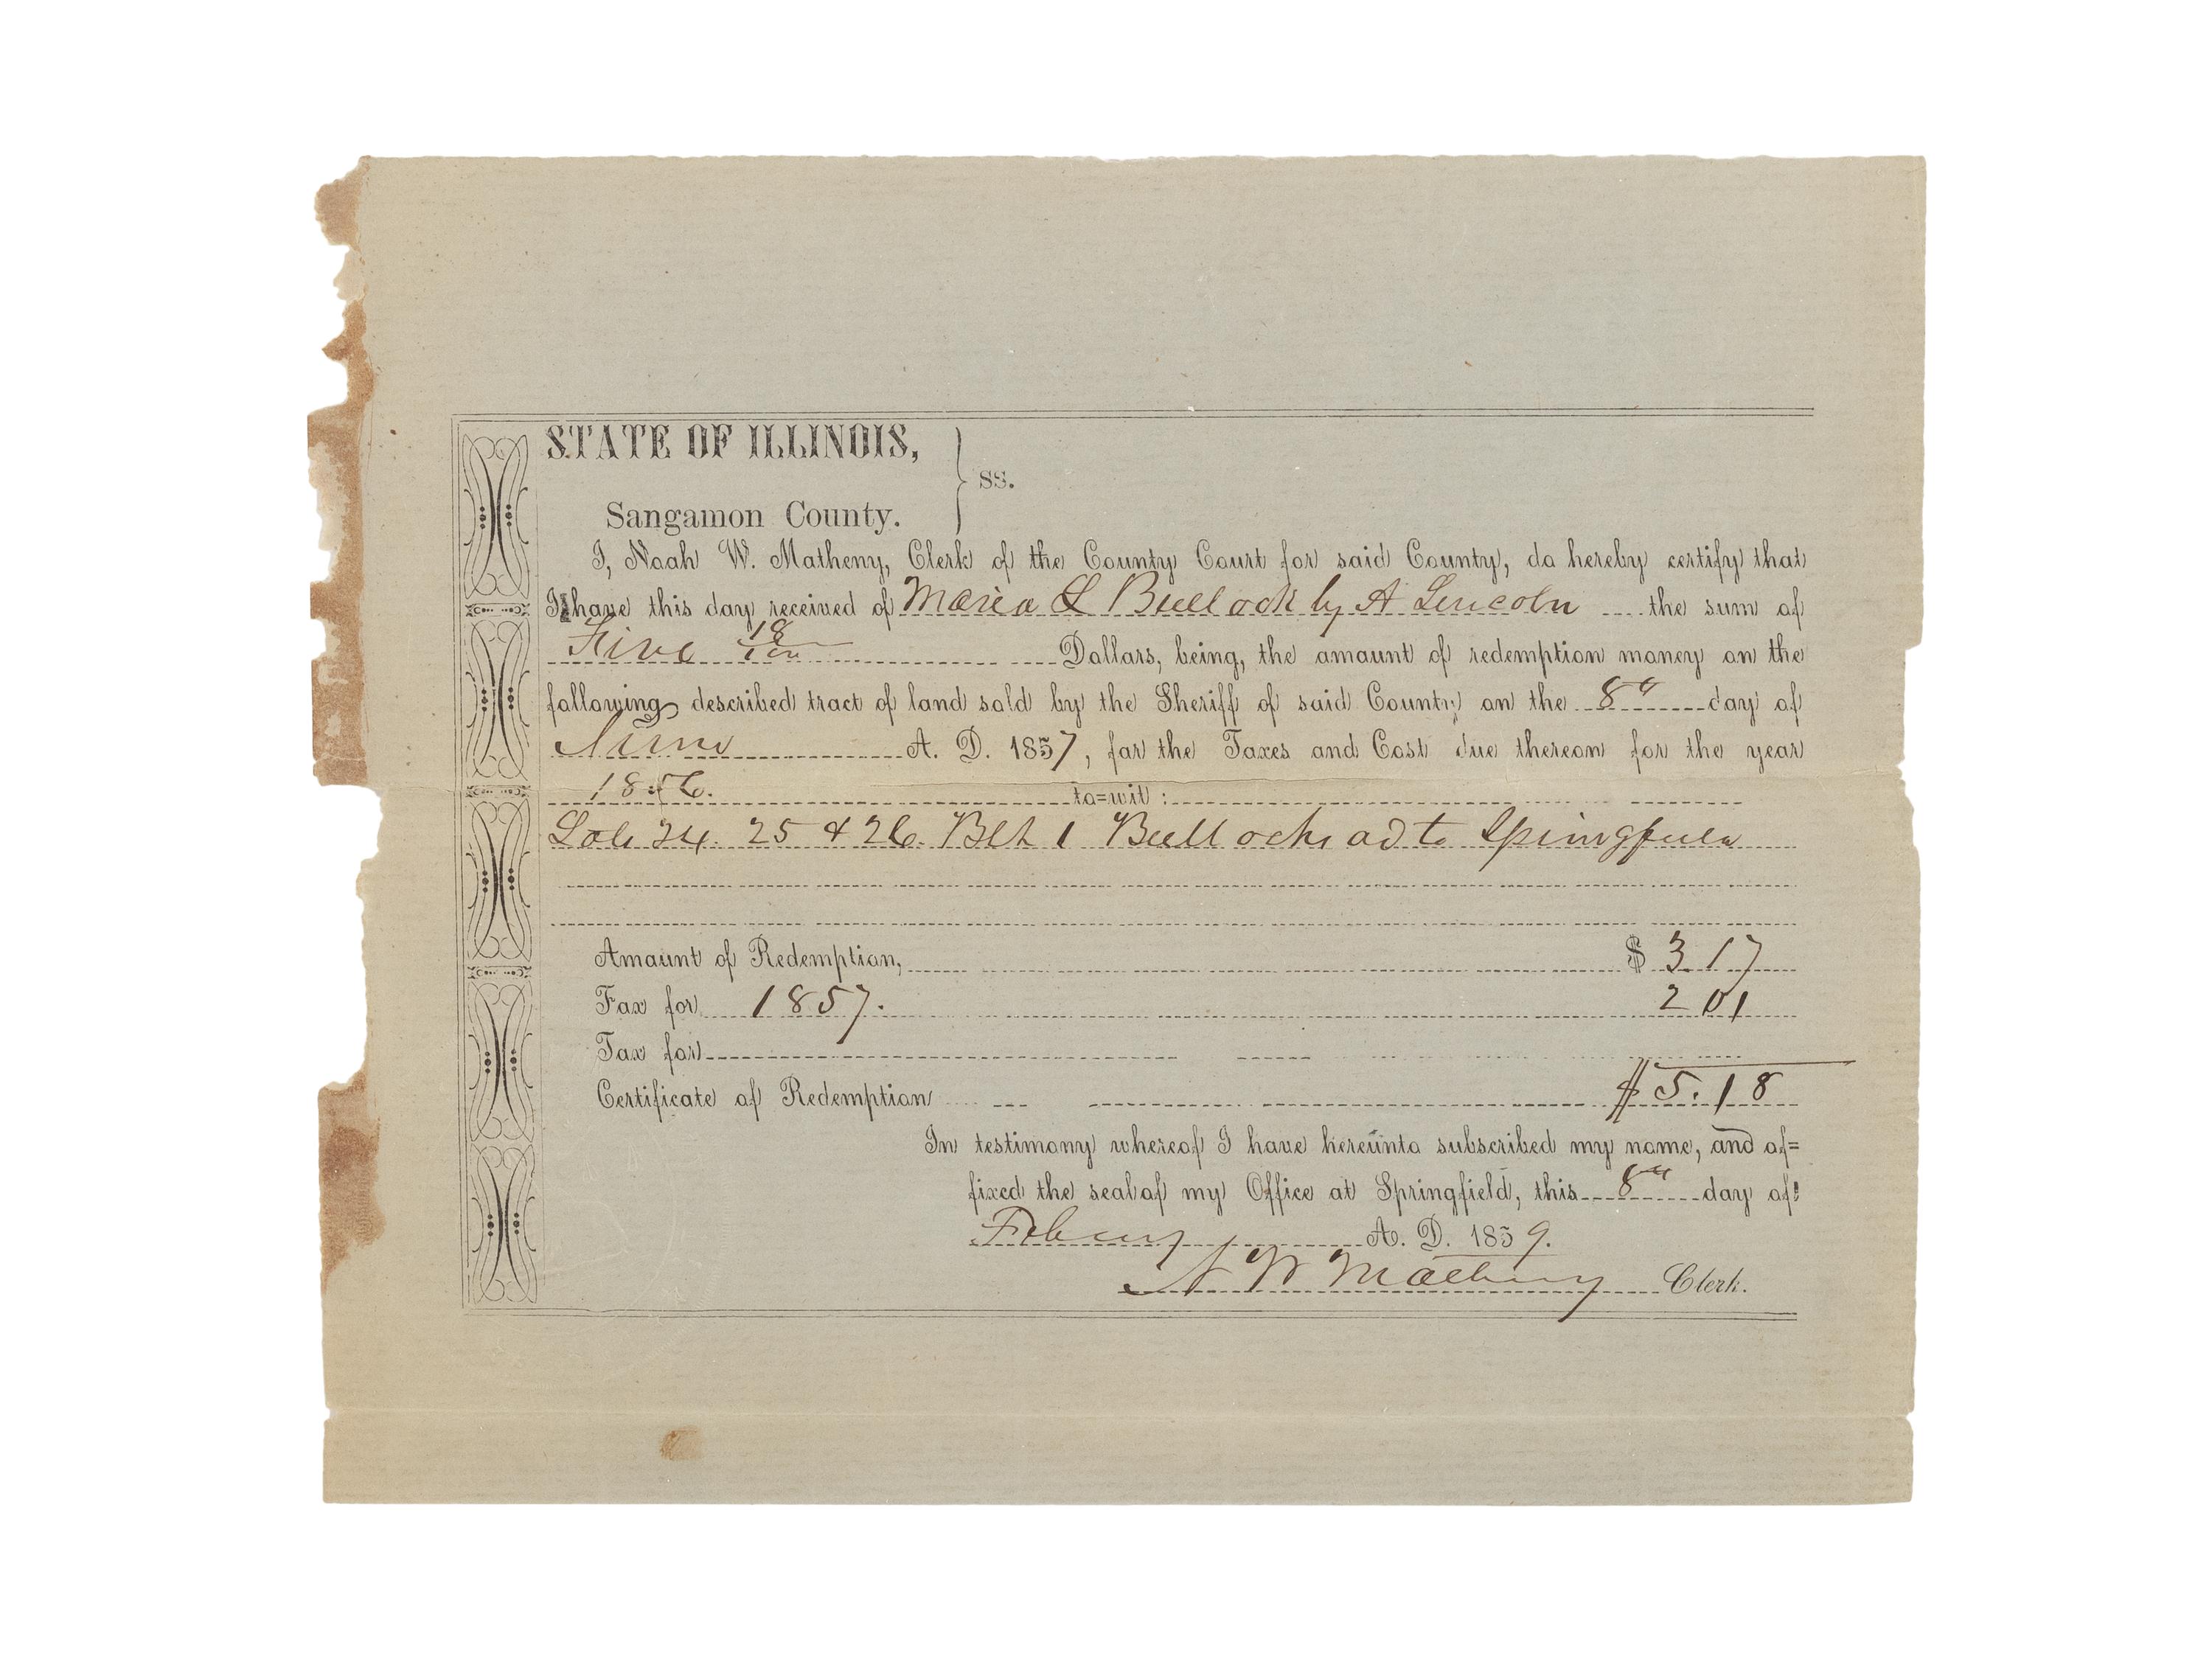 STATE OF ILLINOIS,
ss.
Sangamon County.
I, Noah W. Matheny, Clerk of the County Court for said County, do hereby certify that
I have this day received of Maria L Bullock by A Lincoln the sum of
Five 18/100 Dollars, being, the amount of redemption money on the
following described tract of land sold by the Sheriff of said County on the 8" day of
June A. D. 1857, for the Taxes and Cost due thereon for the year
1856. to=wit:
Lots 24. 25 & 26. Blk 1 Bullocks ad to Springfield
Amount of Redemption, $ 3 17
Tax for 1857. 2 01
Tax for
Certificate of Redemption $5.18
In testimony whereof I have hereunto subscribed my name, and af=
fixed the seal of my Office at Springfield, this 8" day of
Febury A. D. 1859.
N W Matheny Clerk.